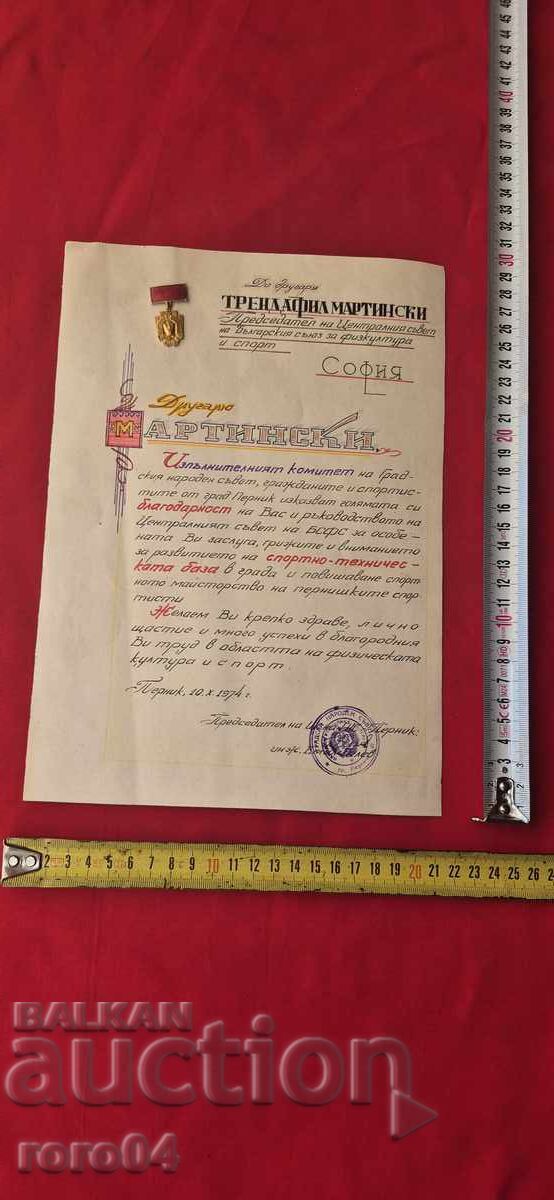 До другаря
ТРЕНДАФИЛ МАРТИНСКИ
Председател на Централния съвет
на Българския съюз за физкултура
и спорт
София
Другарю
МАРТИНСКИ,
Изпълнителният комитет на Град-
ския народен съвет, гражданите и спортис-
тите от град Перник изказват голямата си
благодарност на Вас и ръководството на
Централният съвет на БСФС за особе-
ната Ви заслуга, грижите и вниманието
за развитието на спортно-техничес-
ката база в града и повишаване спорт-
ното майсторство на пернишките спор-
тисти.
Желаем Ви крепко здраве, лично
щастие и много успехи в благородния
Ви труд в областта на физическата
култура и спорт.
Перник, 10.X.1974 г.
Председател на Перник:
инж.
BALKAN
auction
roro04